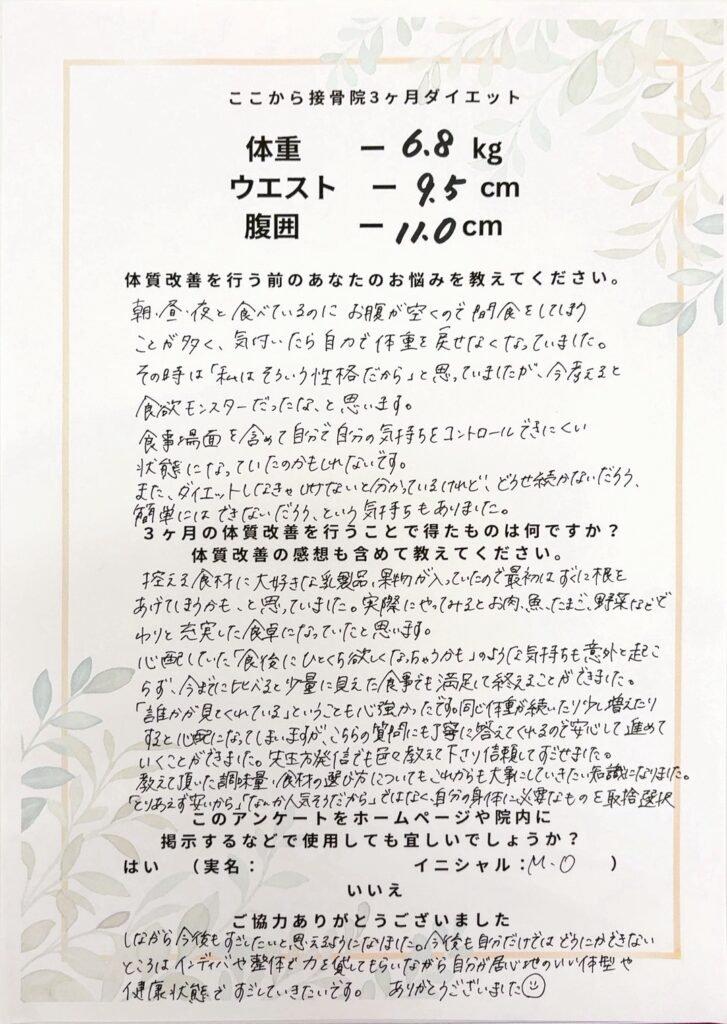 ここから接骨院3ヶ月ダイエット
体重 － 6.8 kg
ウエスト － 9.5 cm
腹囲 － 11.0 cm
体質改善を行う前のあなたのお悩みを教えてください。
朝・昼・夜と食べているのに お腹が空くので間食をしてしまう
ことが多く、気付いたら自力で体重を戻せなくなっていました。
その時は「私はそういう性格だから」と思っていましたが、今考えると
食欲モンスターだったな、と思います。
食事場面を含めて自分で自分の気持ちをコントロールできにくい
状態になっていたのかもしれないです。
また、ダイエットしなきゃいけないと分かっているけれど、どうせ続かないだろう、
簡単にはできないだろう、という気持ちもありました。
3ヶ月の体質改善を行うことで得たものは何ですか？
体質改善の感想も含めて教えてください。
控える食材に大好きな乳製品、果物が入っていたので最初はすぐに根を
あげてしまうかも、と思っていました。実際にやってみるとお肉、魚、たまご、野菜などで
わりと充実した食卓になっていたと思います。
心配していた「食後にひとくち欲しくなっちゃうかも」のような気持ちも意外と起こ
らず、今までに比べると少量に見えた食事でも満足して終えることができました。
「誰かが見てくれている」ということも心強かったです。同じ体重が続いたり少し増えたり
すると心配になってしまいますが、こちらの質問にも丁寧に答えてくれるので安心して進めて
いくことができました。先生方発信でも色々教えて下さり信頼してすごせました。
教えて頂いた調味量、食材の選び方についてもこれからも大事にしていきたい知識になりました。
「とりあえず安いから」「なんか人気そうだから」ではなく、自分の身体に必要なものを取捨選択
このアンケートをホームページや院内に
掲示するなどで使用しても宜しいでしょうか？
はい （実名： イニシャル：M・O ）
いいえ
ご協力ありがとうございました
しながら今後もすごしたいと思えるようになりました。今後も自分だけではどうにかできない
ところはインディバや整体で力を貸してもらいながら自分が居心地のいい体型や
健康状態ですごしていきたいです。 ありがとうございました☺